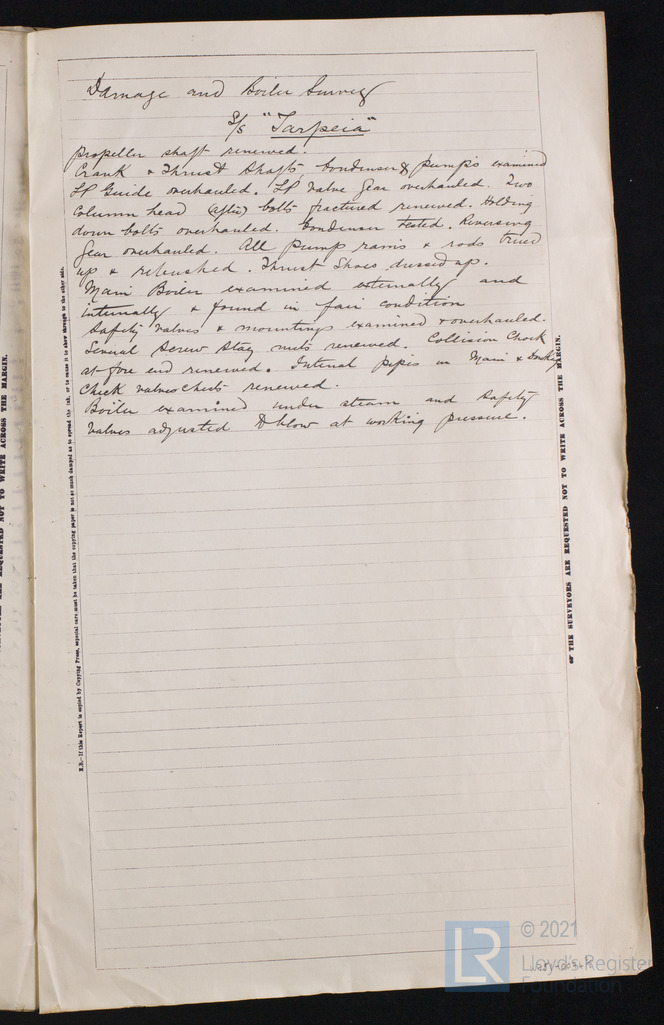 Damage and Boiler Survey
S/S "Tarpeia"
Propeller shaft renewed.
Crank & Thrust Shafts, Condenser & pumps examined
LP Guide overhauled. LP valve gear overhauled. Two
Column head (after) bolts fractured renewed. Holding
down bolts overhauled. Condenser tested. Reversing
Gear overhauled. All pump rams & rods trued
up & rebushed. Thrust Shoes dressed up.
Main Boiler examined externally and
internally & found in fair condition
Safety valves & mountings examined & overhauled.
Several Screw Stay nuts renewed. Collision Chock
at fore end renewed. Internal pipes in Main & Donkey
Check valves chests renewed.
Boiler examined under steam and Safety
valves adjusted to blow at working pressure.
N.B.—If this Report is copied by Copying Press, especial care must be taken that the copying paper is not so much damped as to spread the ink, or to cause it to show through to the other side.
THE SURVEYORS ARE REQUESTED NOT TO WRITE ACROSS THE MARGIN.
REQUESTED NOT TO WRITE ACROSS THE MARGIN.
© 2021
LR
Lloyd's Register
Foundation